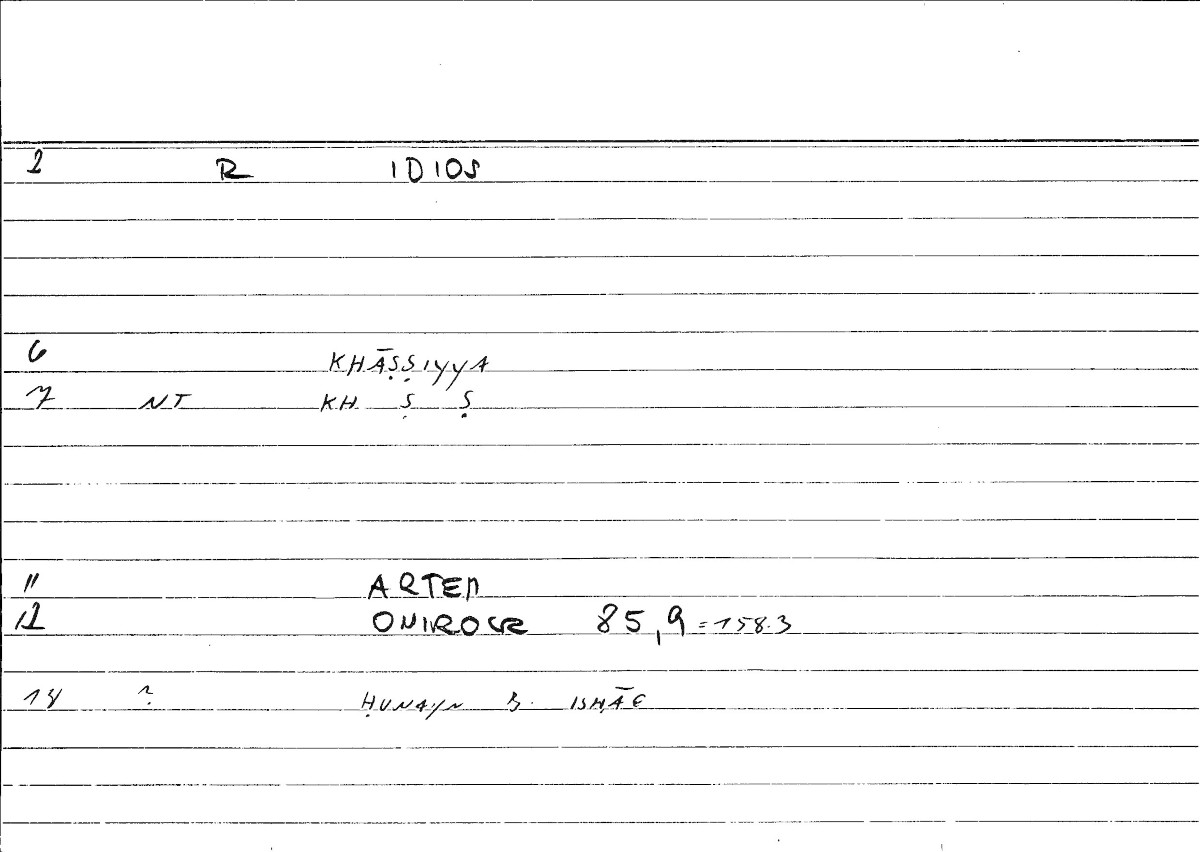 2 R IDIOS
6 KHĀṢṢIYYA
7 NT KH Ṣ Ṣ
11 ARTEM
12 ONIROCR 85,9 = 158.3
14 ? ḤUNAYN B. ISḤĀ